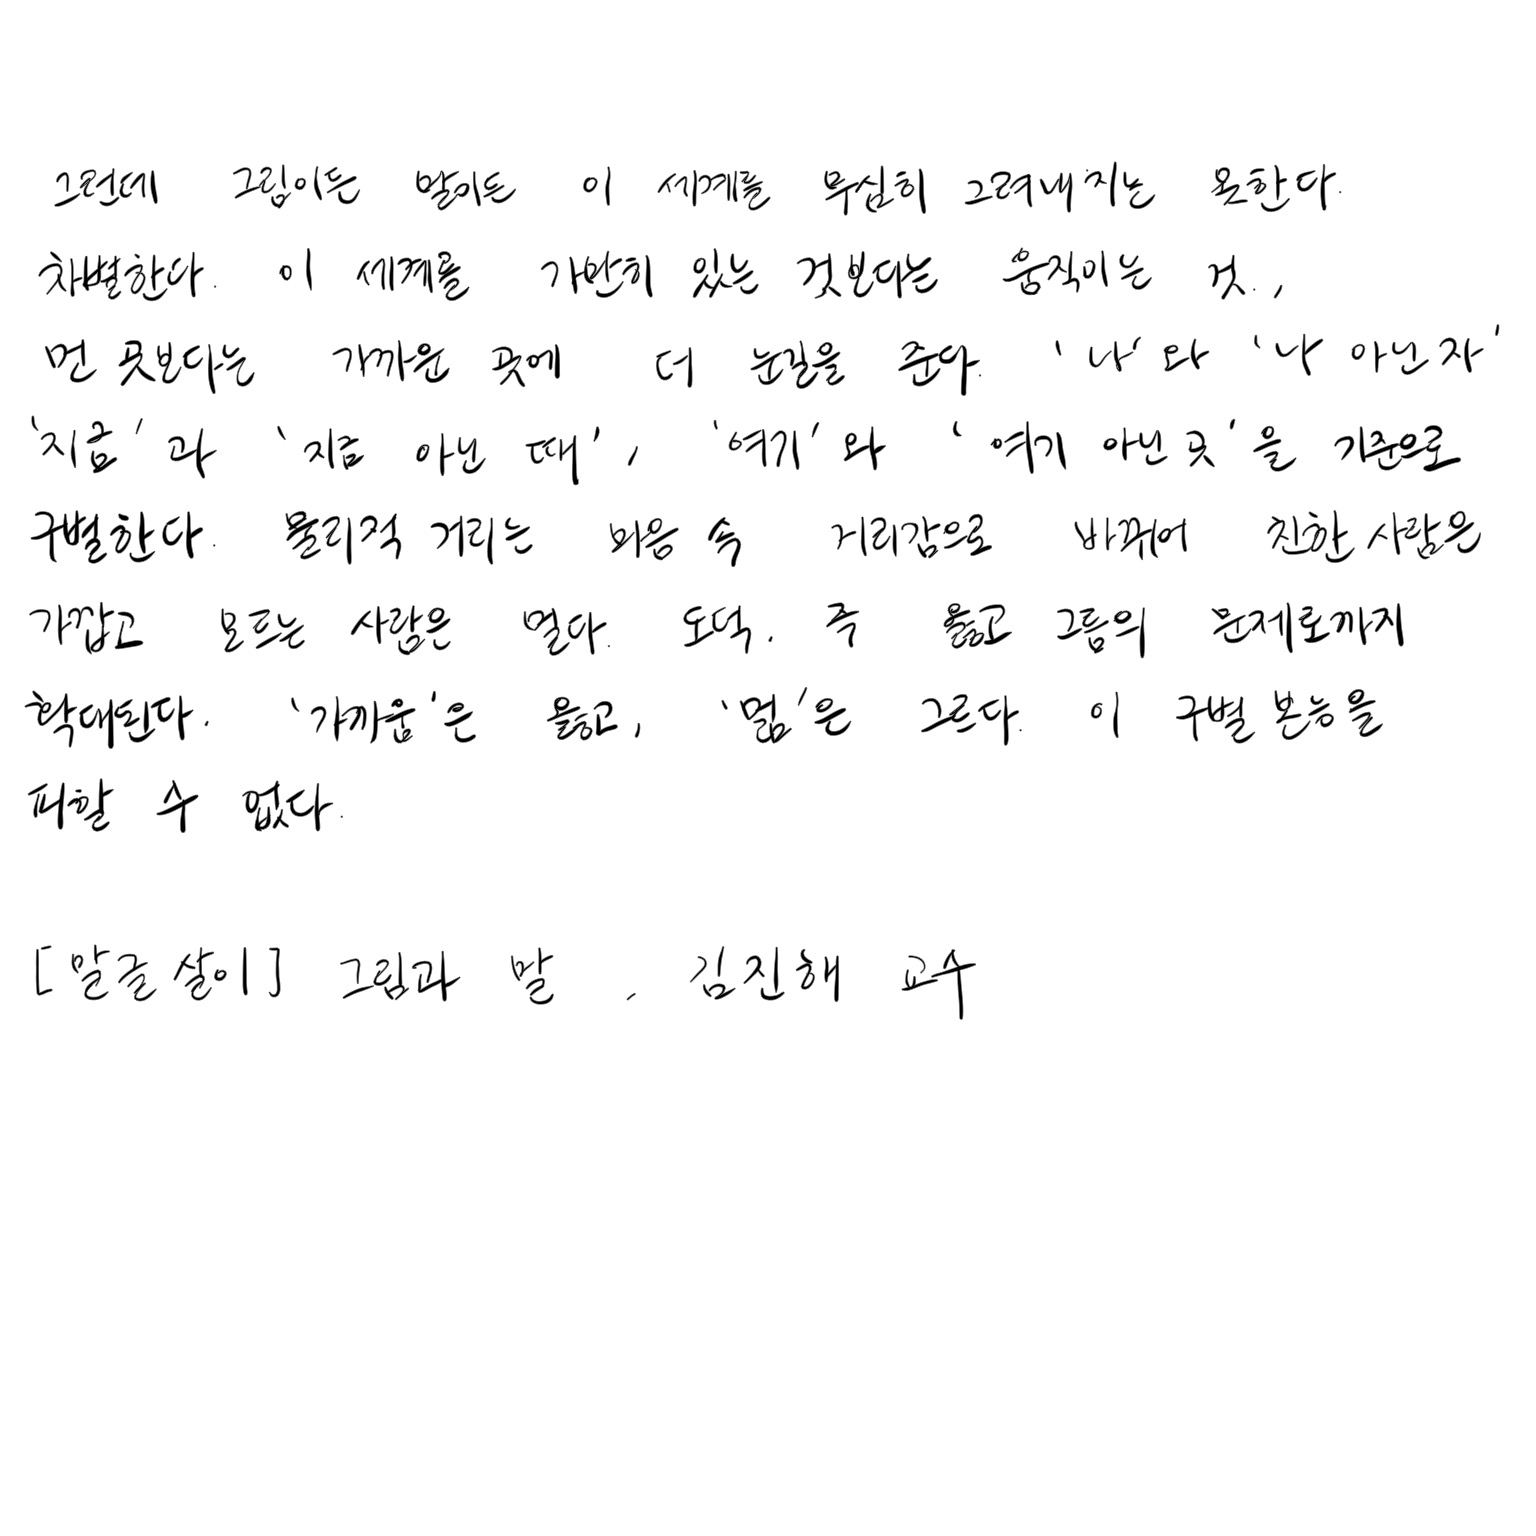 그런데 그림이든 말이든 이 세계를 무심히 그려내지는 못한다.
차별한다. 이 세계를 가만히 있는 것보다는 움직이는 것.,
먼 곳보다는 가까운 곳에 더 눈길을 준다. '나'와 '나 아닌 자'
'지금'과 '지금 아닌 때', '여기'와 '여기 아닌 곳'을 기준으로
구별한다. 물리적 거리는 마음 속 거리감으로 바뀌어 친한 사람은
가깝고 모르는 사람은 멀다. 도덕, 즉 옳고 그름의 문제로까지
확대된다. '가까움'은 옳고, '멂'은 그르다. 이 구별 본능을
피할 수 없다.
[말글 살이] 그림과 말 , 김진해 교수